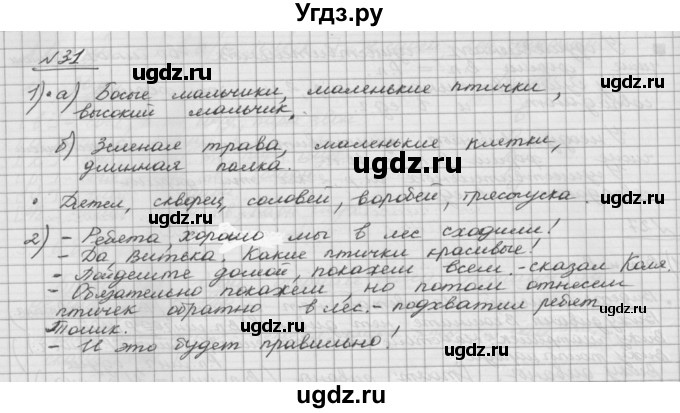 Угдз.ру
№31
1) • а) Босые мальчики, маленькие птички,
высокий мальчик.
б) Зеленая трава, маленькие клетки,
длинная палка.
• Дятел, скворец, соловей, воробей, трясогузка.
2) – Ребята, хорошо мы в лес сходили!
– Да, Витька. Какие птички красивые!
– Пойдемте домой, покажем всем. – сказал Коля.
– Обязательно покажем, но потом отнесем
птичек обратно в лес. – подхватил ребят
Толик.
– И это будет правильно!
ugdz.ru
ugdz.ru
ugdz.ru
ugdz.ru
ugdz.ru
ugdz.ru
ugdz.ru
ugdz.ru
ugdz.ru
ugdz.ru
ugdz.ru
ugdz.ru